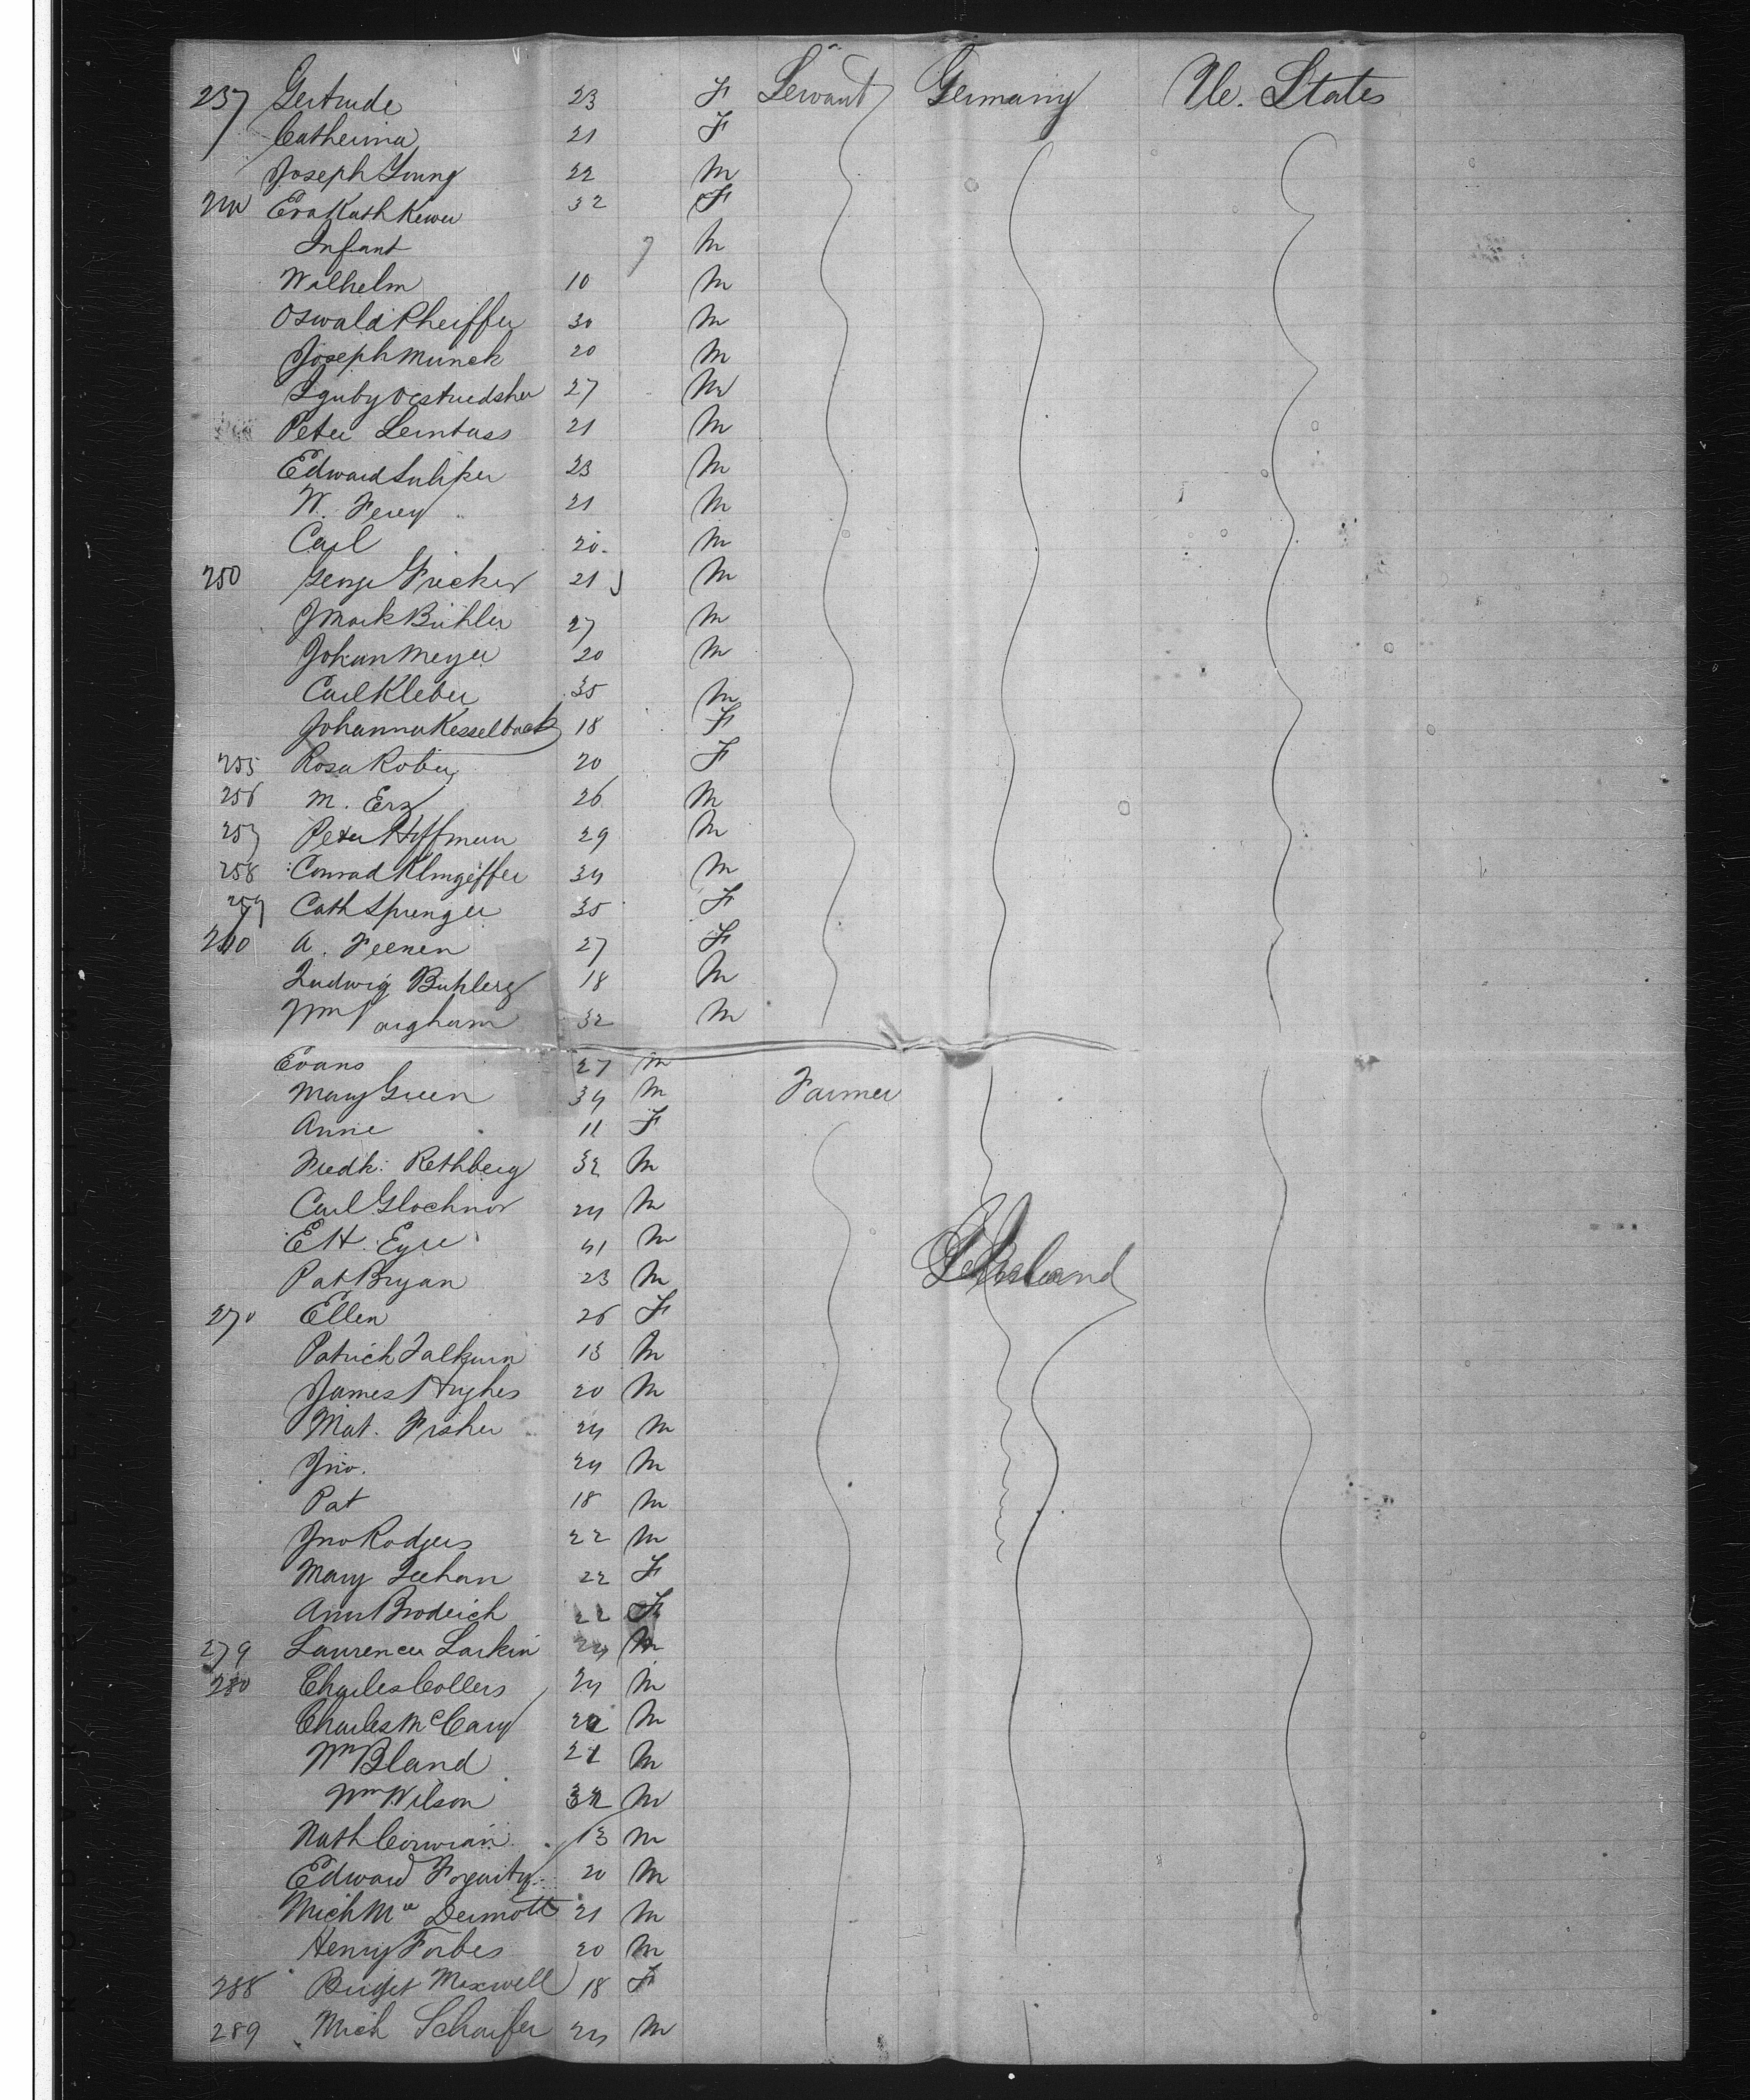 237 Gertrude 23 F Servant Germany Ue. States
Catherina 21 F
Joseph Young 22 M
Eva Kath Kewer 32 F
Infant M
Wilhelm 10 M
Oswald Pheiffer 30 M
Joseph Munck 20 M
27 M
Peter Leintass 21 M
Edward 23 M
W. Ferey 21 M
Carl 20 M
250 George Fricker 21 M
J Mark Bühler 27 M
Johan Meyer 20 M
Carl Kleber 35 M
Johanna Kesselback 18 F
255 Rosa Rober 20 F
256 M. Erz 26 M
257 Peter Hoffman 29 M
258 Conrad Klingeffer 34 M
259 Cath Sprenger 35 F
260 A. Feenen 27 F
Ludwig Buhlerz 18 M
Wm argham 32 M
Evans 27 M
Mary Green 34 M Farmer
Anne 11 F
Fredk: Rethberg 32 M
Carl Glochnor 24 M
E H Eyre 41 M
Ireland
Pat Bryan 23 M
270 Ellen 26 F
Patrick Falkurn 13 M
James Hughes 20 M
Mat. Fisher 24 M
Jno. 24 M
Pat 18 M
Jno Rodgers 22 M
Mary Leehan 22 F
Ann Broderich 22 F
279 Laurence Larkin 24 M
280 Charles Collers 24 M
Charles Mc Cary 22 M
Wm Bland 21 M
Wm Wilson 32 M
Nath Corwian 13 M
Edward Fogarty 20 M
Mich Mc Dermott 21 M
Henry Forbes 20 M
288 Bridget Maxwell 18 F
289 Mich Schaifer 24 M